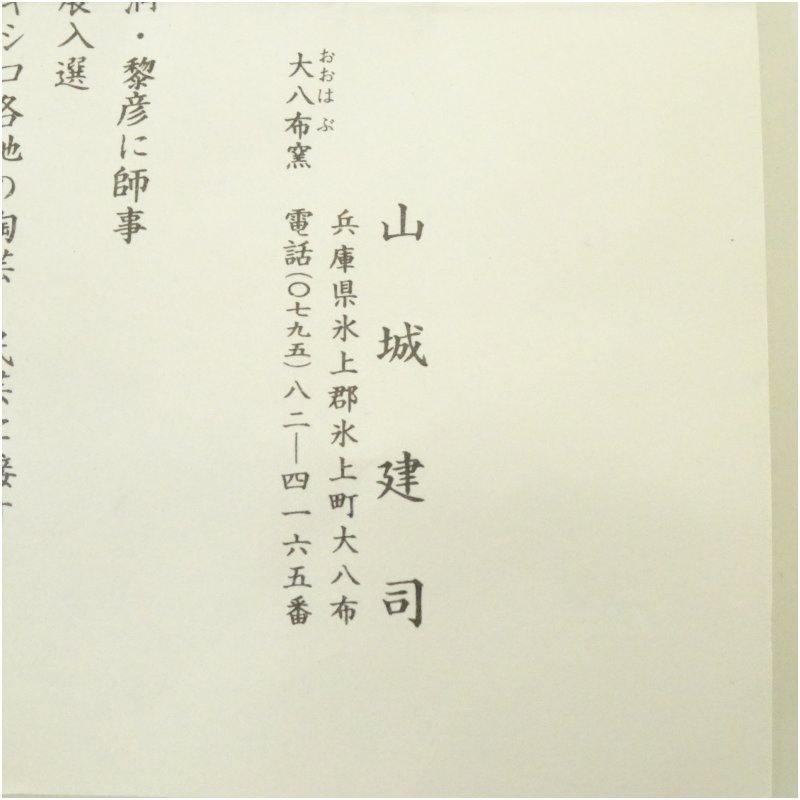 山城建司
兵庫県氷上郡氷上町大八布
電話(〇七九五)八二―四一六五番
おおはぶ
大八布窯
・黎彦に師事
展入選
シコ各地の陶芸